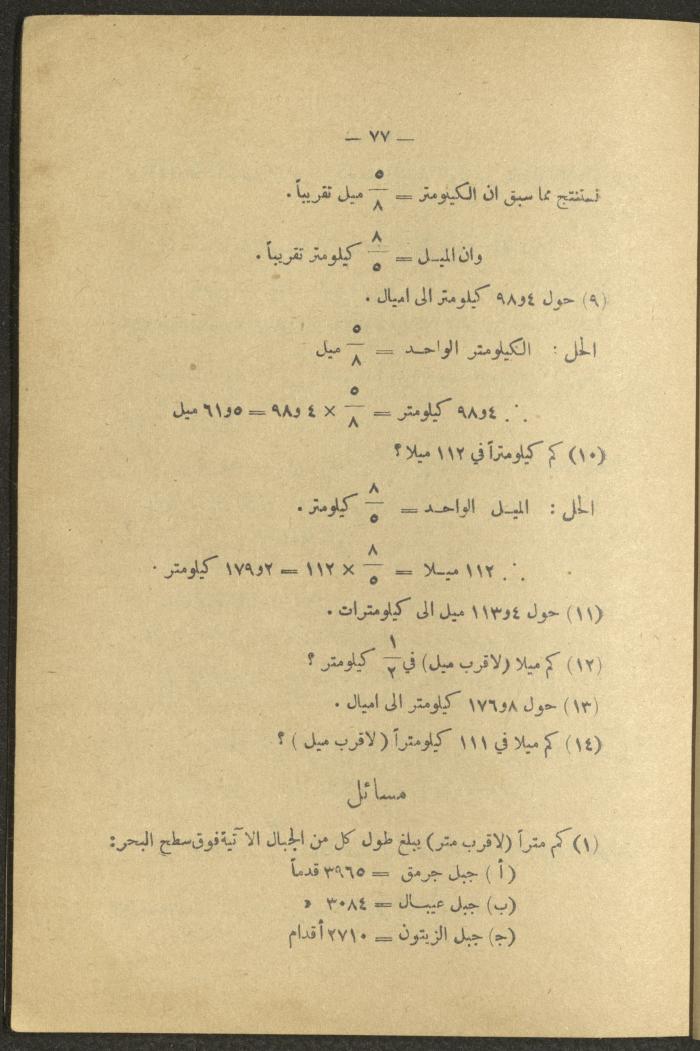 — ٧٧ —
فستنتج مما سبق ان الكيلومتر = ٥/٨ ميل تقريباً .
وان الميـل = ٨/٥ كيلومتر تقريباً .
(٩) حول ٩٨و٤ كيلومتر الى اميال .
الحل : الكيلومتر الواحـد = ٥/٨ ميل
∴ ٩٨و٤ كيلومتر = ٥/٨ × ٩٨و٤ = ٦١و٥ ميل
(١٠) كم كيلومتراً في ١١٢ ميلا ؟
الحل : الميـل الواحـد = ٨/٥ كيلومتر .
∴ ١١٢ ميـلا = ٨/٥ × ١١٢ = ١٧٩و٢ كيلومتر .
(١١) حول ١١٣و٤ ميل الى كيلومترات .
(١٢) كم ميلا (لاقرب ميل) في ١/٢ كيلومتر ؟
(١٣) حول ١٧٦و٨ كيلومتر الى اميال .
(١٤) كم ميلا في ١١١ كيلومتراً ( لاقرب ميل ) ؟
مسائل
(١) كم متراً (لاقرب متر) يبلغ طول كل من الجبال الآتية فوق سطح البحر:
(أ) جبل جرمق = ٣٩٦٥ قدماً
(ب) جبل عيبـال = ٣٠٨٤ »
(ج) جبل الزيتون = ٢٧١٠ أقدام